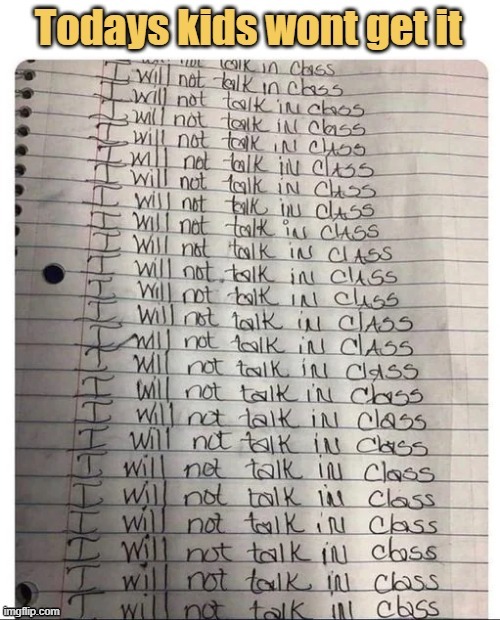 Todays kids wont get it
not talk in class
I will not talk in class
I will not talk in class
I will not talk in class
I will not talk in class
I will not talk in class
I will not talk in class
I will not talk in class
I will not talk in class
I will not talk in class
I will not talk in class
I will not talk in class
I will not talk in class
I will not talk in class
I will not talk in class
I will not talk in class
I will not talk in class
I will not talk in class
I will not talk in class
I will not talk in class
I will not talk in class
I will not talk in class
I will not talk in class
I will not talk in class
imgflip.com